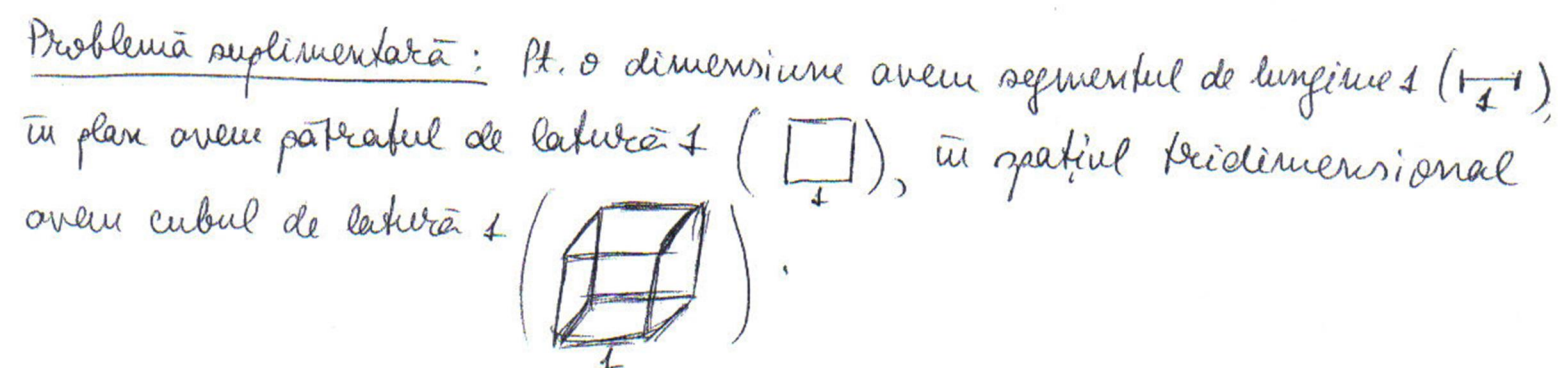 Problemă suplimentară : Pt. o dimensiune avem segmentul de lungime 1 (1),
în plan avem pătratul de latură 1 (1), în spațiul tridimensional
avem cubul de latură 1 (1).